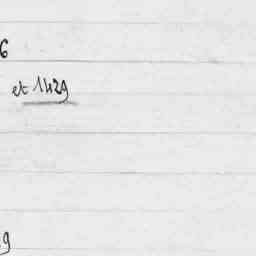 6
et 1429
9